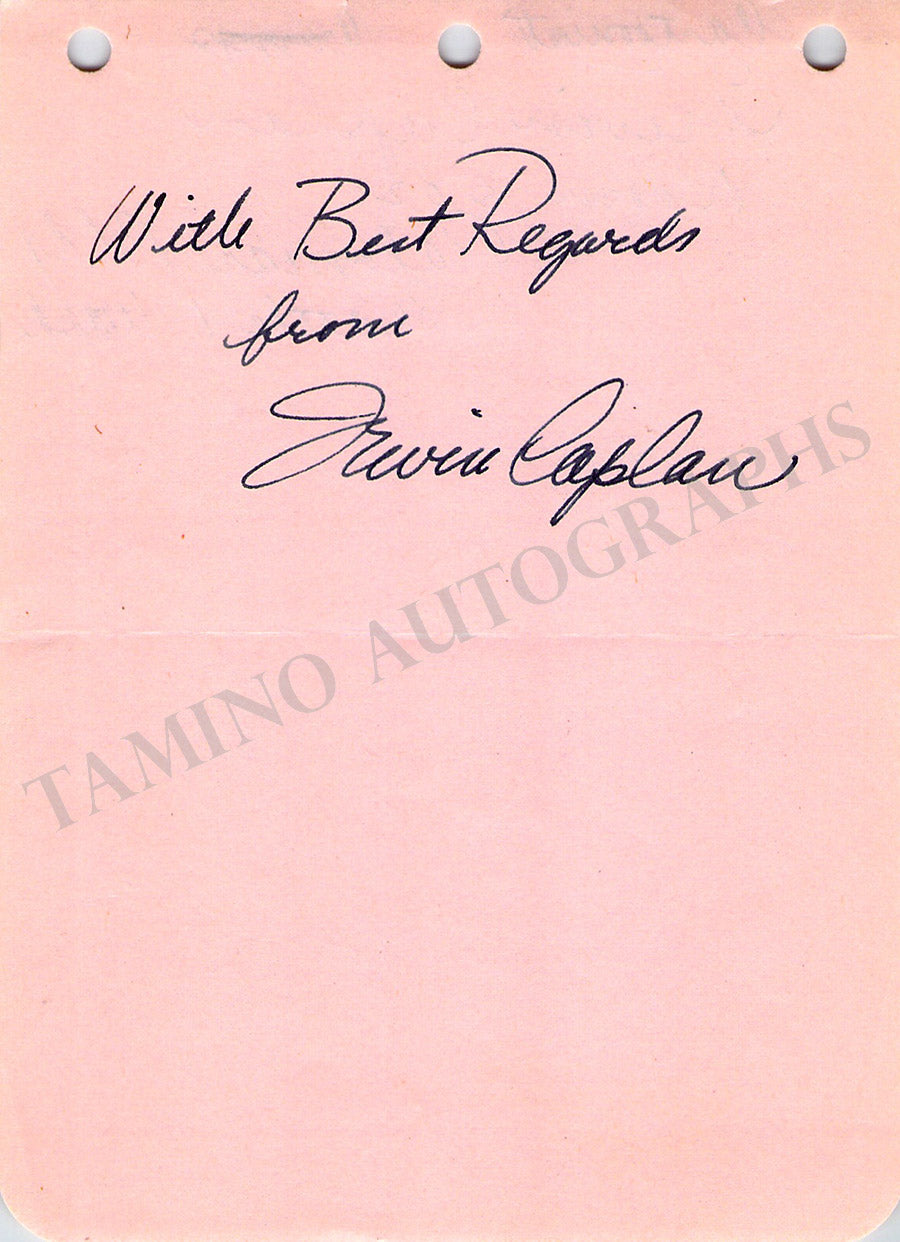 With Best Regards
from
Irwin Caplan
TAMINO AUTOGRAPHS